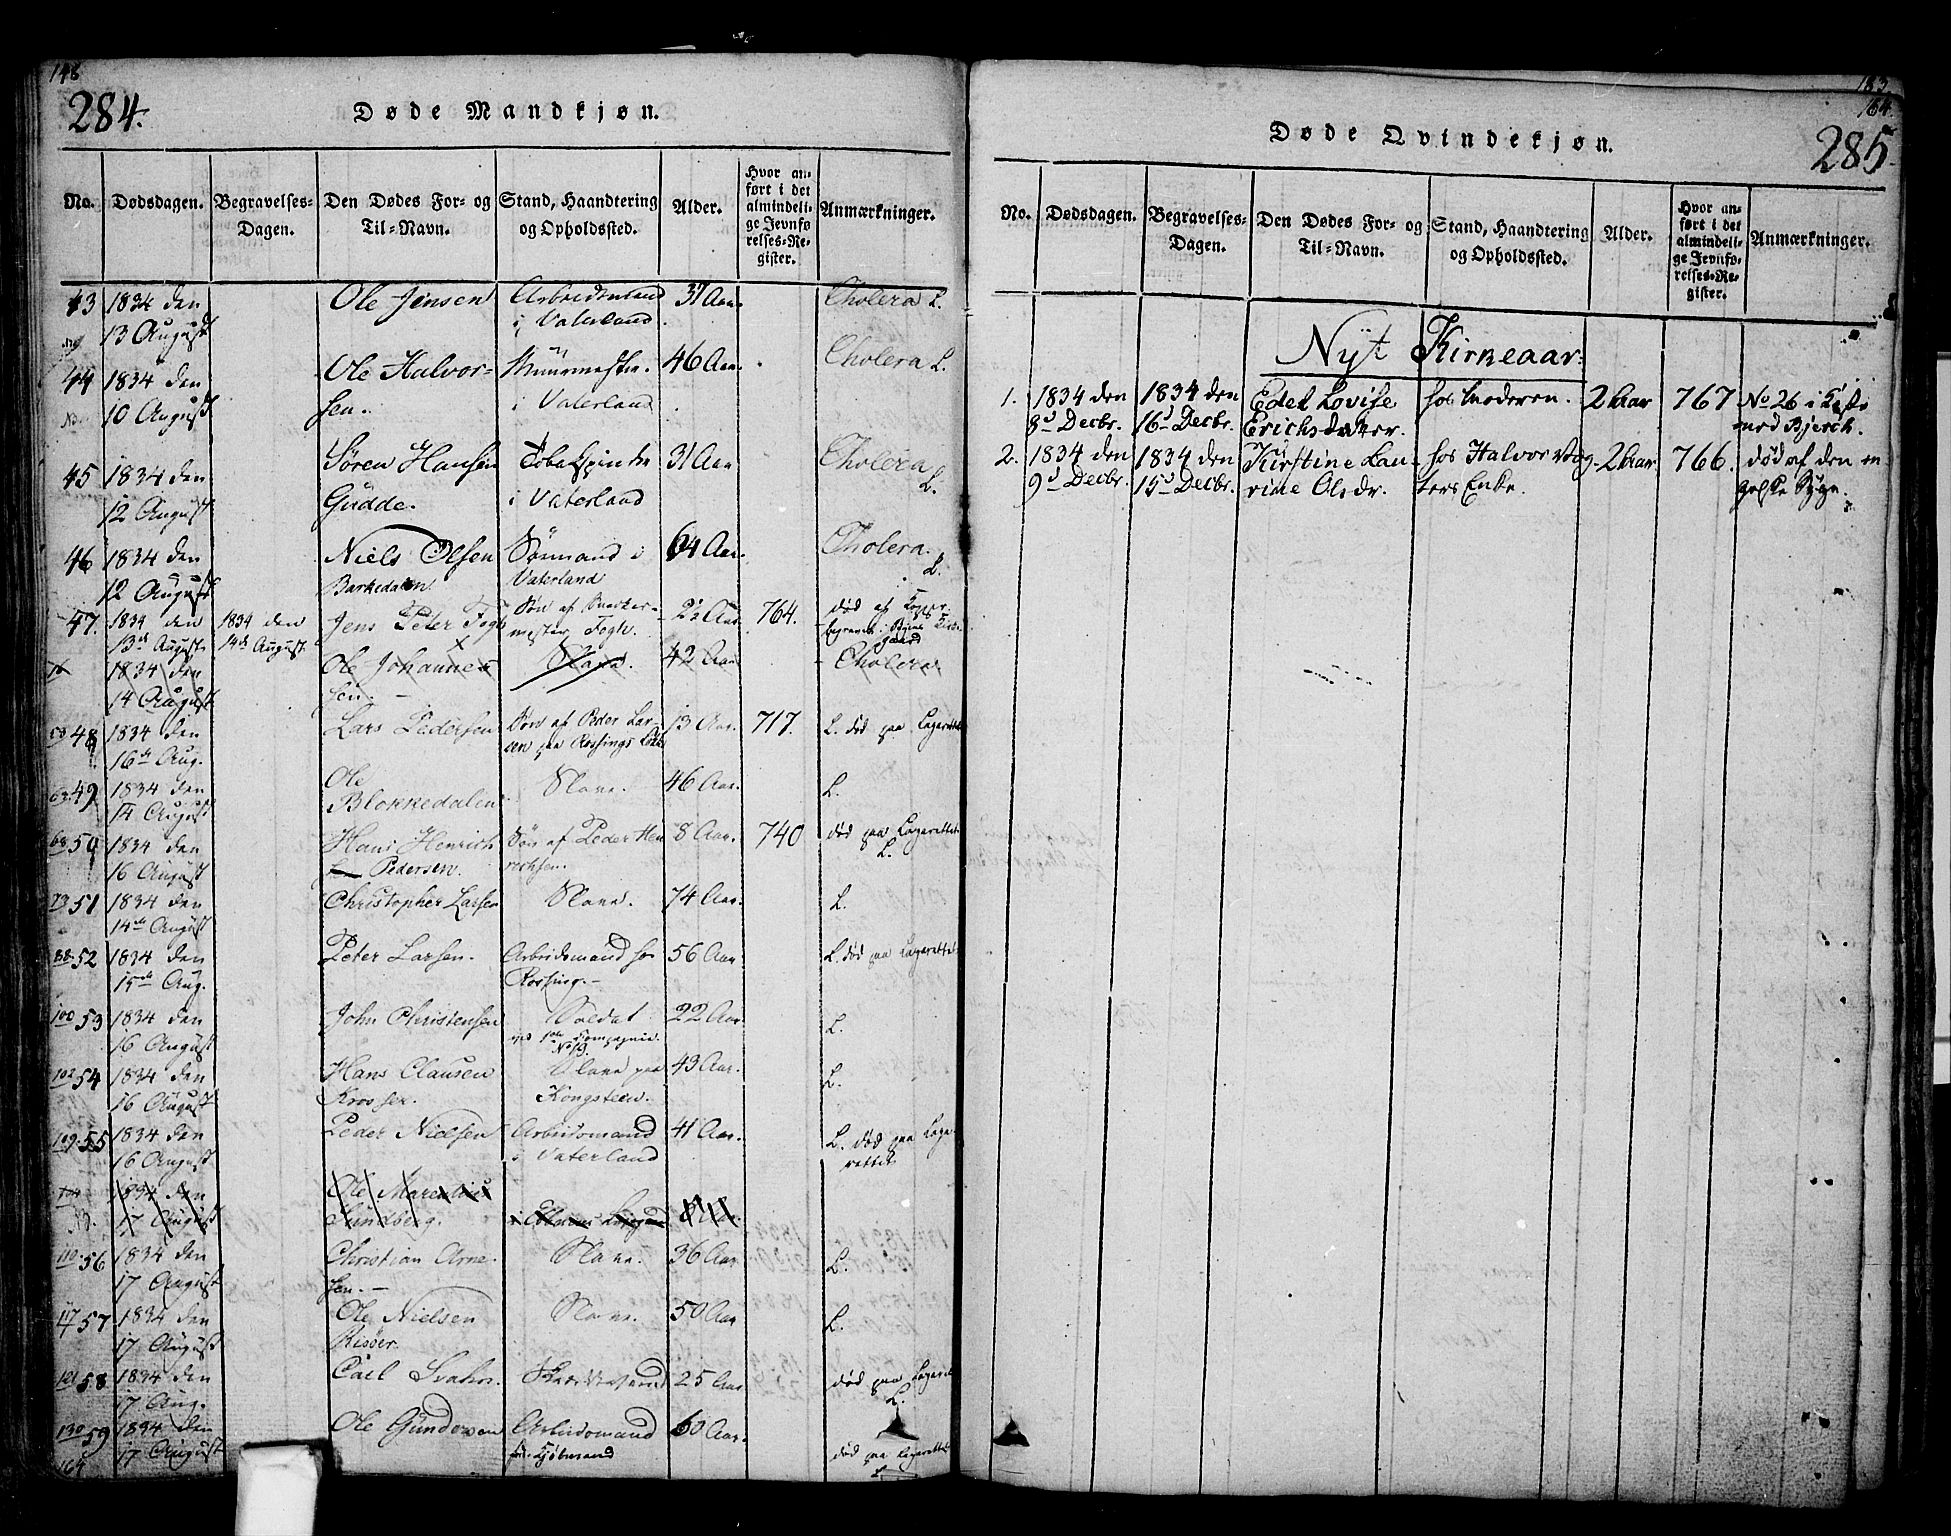 148
284.
Døde Mandkjøn.
No. Dødsdagen. Begravelses-Dagen. Den Dødes For- og Til-Navn. Stand, Haandtering og Opholdssted. Alder. Hvor anført i det almindelige Jevnførelses-Register. Anmærkninger.
43 1834 den Ole Jensen Arbeidsmand 31 Aar. Cholera L.
13 August i Vaterland
44 1834 den Ole Halvor- Muurmester. 46 Aar. Cholera L.
10 August sen. i Vaterland
45 1834 den Søren Hansen Tobakspinder 31 Aar Cholera
12 August Gudde. i Vaterland L.
46 1834 den Niels Olsen Sømand i 64 Aar. Cholera.
12 August Barkedalen Vaterland L.
47. 1834 den 1834 den Jens Peter Fogh Søn af 2½ Aar 764. død af
13de August 14de August mester Fogh.
1834 den Ole Johanne- Slave. 42 Aar Cholera
14 August sen.
48 1834 den Lars Pedersen Søn af Peder Lar- 13 Aar. 717. L. død paa Lazarettet
16de Aug. sen paa Rossings
63 49 1834 den Ole Slave. 46 Aar. L.
14 August Blokkedalen
68 50 1834 den Hans Henrich Søn af Peder Hen 8 Aar. 740 død paa Lazarettet
16 August Pedersen. richsen. L.
73 51 1834 den Christopher Larsen Slave. 74 Aar. L.
14de August
88 52 1834 den Peter Larsen. Arbeidsmand hos 56 Aar L. død paa Lazarettet
15de Aug. Rossing.
100 53 1834 den John Christensen Soldat 22 Aar L.
16 August Compagnie No 19.
102 54 1834 den Hans Clausen Slave paa 43 Aar. L.
16 August Krosser. Kongsteen.
109. 55 1834 den Peder Nielsen Arbeidsmand 41 Aar. L. død paa Laza-
16 August i Vaterland rettet
1834 den Ole
17 August Sundberg.
110. 56 1834 den Christian Arne- Slave. 36 Aar L.
17 August sen.
117 57 1834 den Ole Nielsen Slave. 50 Aar L.
17 August Risöer.
121 58 1834 den Carl Svahn. 25 Aar død paa Lazaret
17 Aug. L.
130 59 1834 den Ole Gundersen Arbeidsmand 60 Aar.
17 August død paa Lazarettet
164 L.
183.
164.
285
Døde Qvindekjøn.
No. Dødsdagen. Begravelses-Dagen. Den Dødes For- og Til-Navn. Stand, Haandtering og Opholdssted. Alder. Hvor anført i det almindelige Jevnførelses-Register. Anmærkninger.
Nyt Kirkeaar.
1. 1834 den 1834 den Edel Lovise hos Moderen. 2 Aar 767 No 26 i Kiste
8d Decbr. 16d Decbr. Erichsdatter. med Bjerck.
2. 1834 den 1834 den Kirstine Lau- hos Halvor Vog- 2 Aar 766. død af den en
9d Decbr. 15d Decbr. rine Olsdr. ters Enke. gelske Syge.